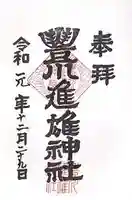 奉拝
豐川進雄神社
令和元年十二月二十九日